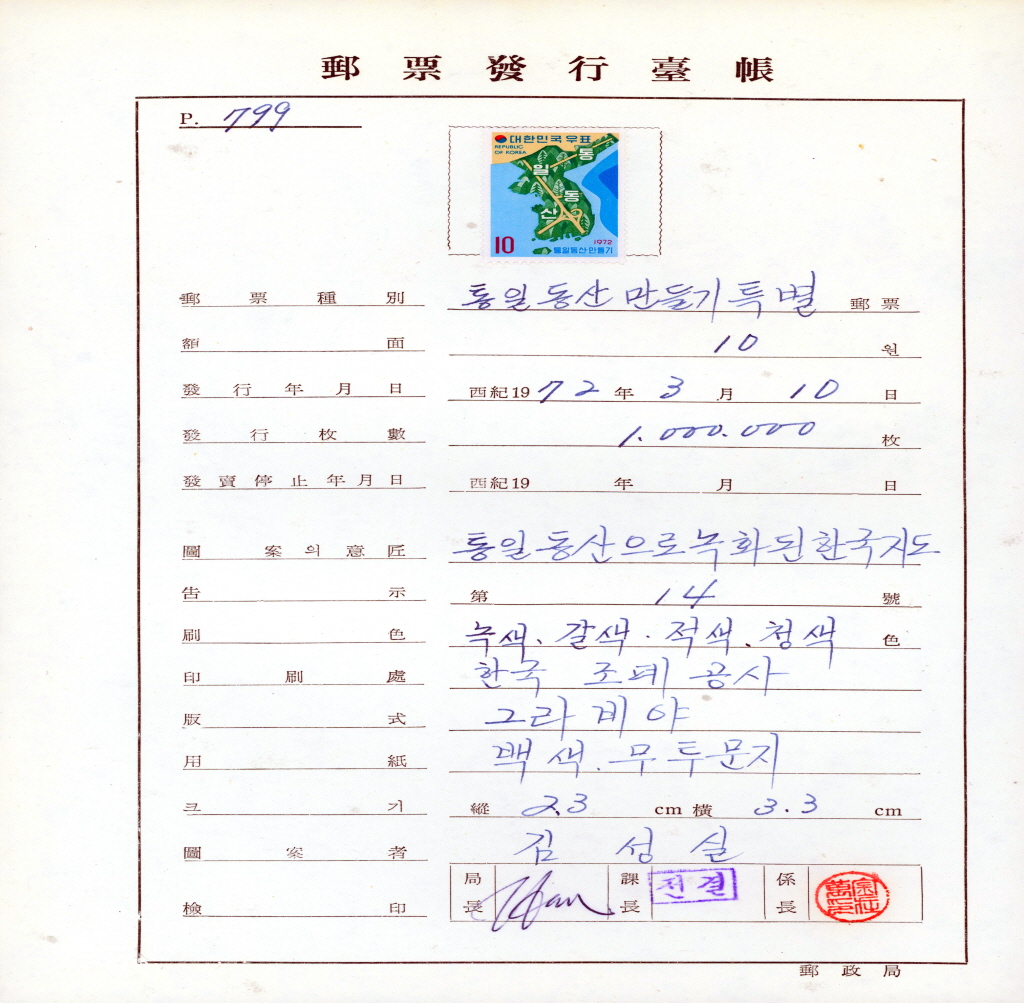 郵票發行臺帳
P. 799
대한민국우표
REPUBLIC OF KOREA
통일동산
10
1972
통일동산만들기
郵票種別 통일동산만들기특별 郵票
額面 10 원
發行年月日 西紀1972年 3月 10日
發行枚數 1.000.000 枚
發賣停止年月日 西紀19 年 月 日
圖案의意匠 통일동산으로녹화된한국지도
告示 第 14 號
刷色 녹색. 갈색. 적색. 청색 色
印刷處 한국 조폐 공사
版式 그라비야
用紙 백색. 무투문지
크기 縱 2.3 cm 橫 3.3 cm
圖案者 김성실
檢印 局長 課長 전결 係長
郵政局